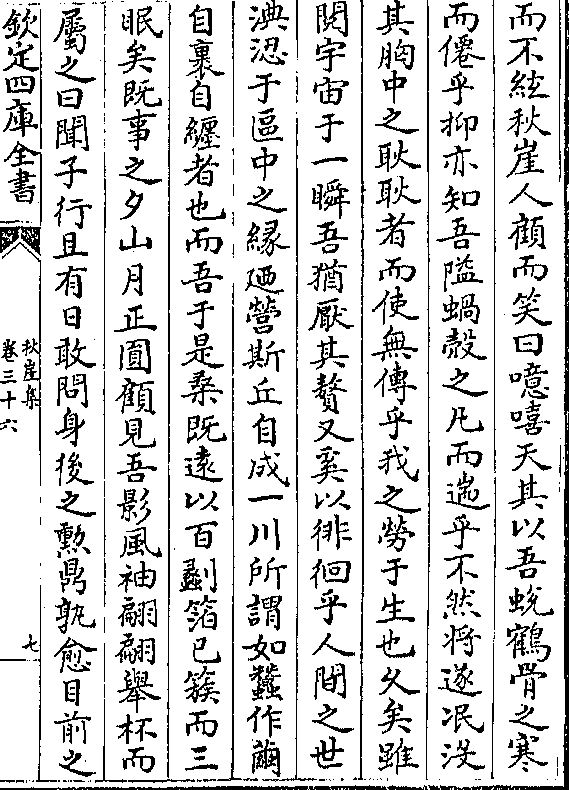 而不紘秋崖人顧而笑曰噫嘻天其以吾蛻鶴骨之寒
而僊乎抑亦知吾隘蝸殻之凡而遄乎不然将遂冺没
其胸中之耿耿者而使無傳乎我之勞于生也久矣雖
閱宇宙于一瞬吾猶厭其贅又奚以徘徊乎人間之世
淟涊于區中之緣廼營斯丘自成一川所謂如蠶作繭
自裹自纏者也而吾于是桑既逺以百剷箔已簇而三
眠矣既事之夕山月正圓顧見吾影風袖翩翩舉杯而
屬之曰聞子行且有日敢問身後之勲鼎孰愈目前之
欽定四庫全書
秋崖集
卷三十六
七